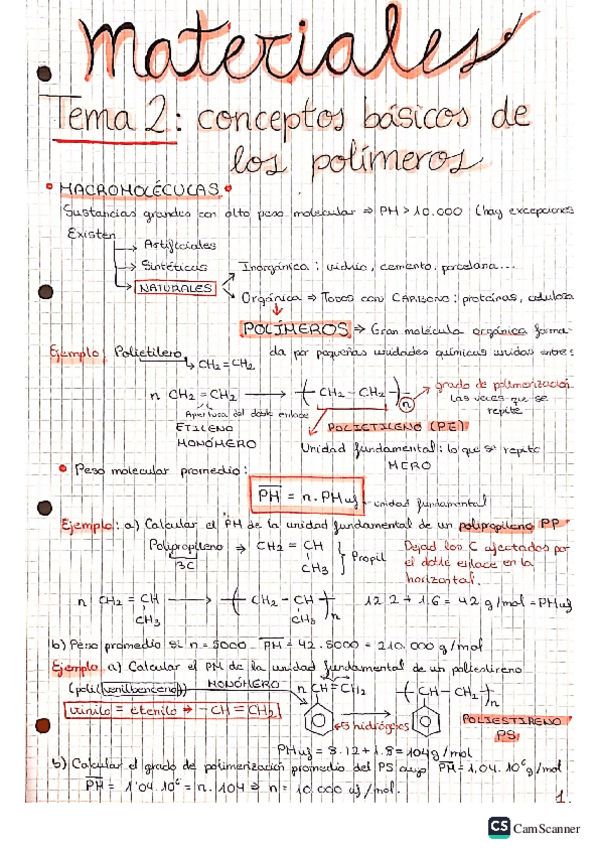 Materiales
Tema 2: conceptos básicos de
los polímeros
• MACROMOLÉCULAS •
Sustancias grandes con alto peso molecular ⇒ PM > 10.000 (hay excepciones
Existen
→ Artificiales
→ Sintéticas
→ NATURALES
Inorgánica: vidrio, cemento, porcelana...
Orgánica ⇒ Todos con CARBONO: proteínas, celulosa
POLÍMEROS ⇒ Gran molécula orgánica forma-
da por pequeñas unidades químicas unidas entre sí
Ejemplo: Polietileno
↳ CH₂=CH₂
n CH₂=CH₂ ⟶ (CH₂-CH₂)n → grado de polimerización.
Las veces que se
repite
Apertura del doble enlace
ETILENO
MONÓMERO
POLIETILENO (PE)
Unidad fundamental: lo que se repite
MERO
• Peso molecular promedio:
PM = n. PMuf unidad fundamental
Ejemplo: a) Calcular el PM de la unidad fundamental de un polipropileno PP
Polipropileno → CH₂ = CH
3C
CH₃
} Propil
Dejad los C afectados por
el doble enlace en la
horizontal.
n CH₂ = CH ⟶ (CH₂ - CH)n
CH₃ CH₃
b) Peso promedio si n = 5000 PM = 42.5000 = 210.000 g/mol
Ejemplo a) Calcular el PM de la unidad fundamental de un poliestireno
MONÓMERO
n CH=CH₂ (CH-CH₂)n
vinilo = etenilo ⇒ -CH=CH₂
5 hidrógenos
POLIESTIRENO
PS
PMuf = 8.12+1.8 = 104g/mol
b) Calcular el grado de polimerización promedio del PS cuyo PM = 1,04. 10⁶ g/mol
PM = 1'04. 10⁶ = n. 104 ⇒ n = 10.000 uf/mol.
1.
CS CamScanner